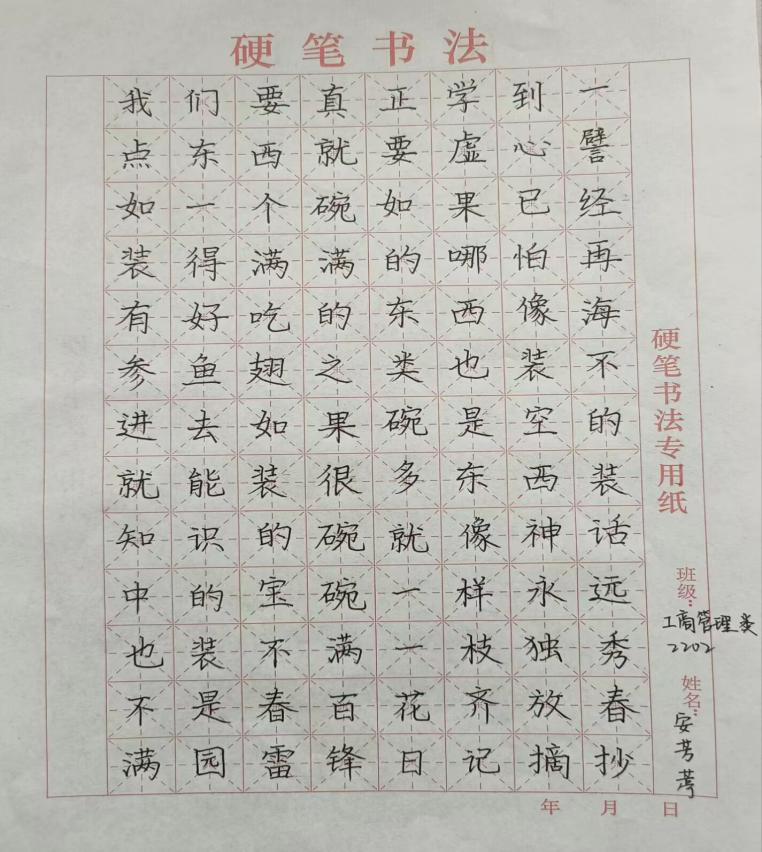 硬笔书法
我们要真正学到一
点东西就要虚心譬
如一个碗如果已经
装得满满的哪怕再
有好吃的东西像海
参鱼翅之类也装不
进去如果碗是空的
就能装很多东西装
知识的碗就像神话
中的宝碗一样永远
也装不满一枝独秀
不是春百花齐放春
满园雷锋日记摘抄
硬笔书法专用纸
班级：
工商管理类
2202
姓名：
安芳
年 月 日